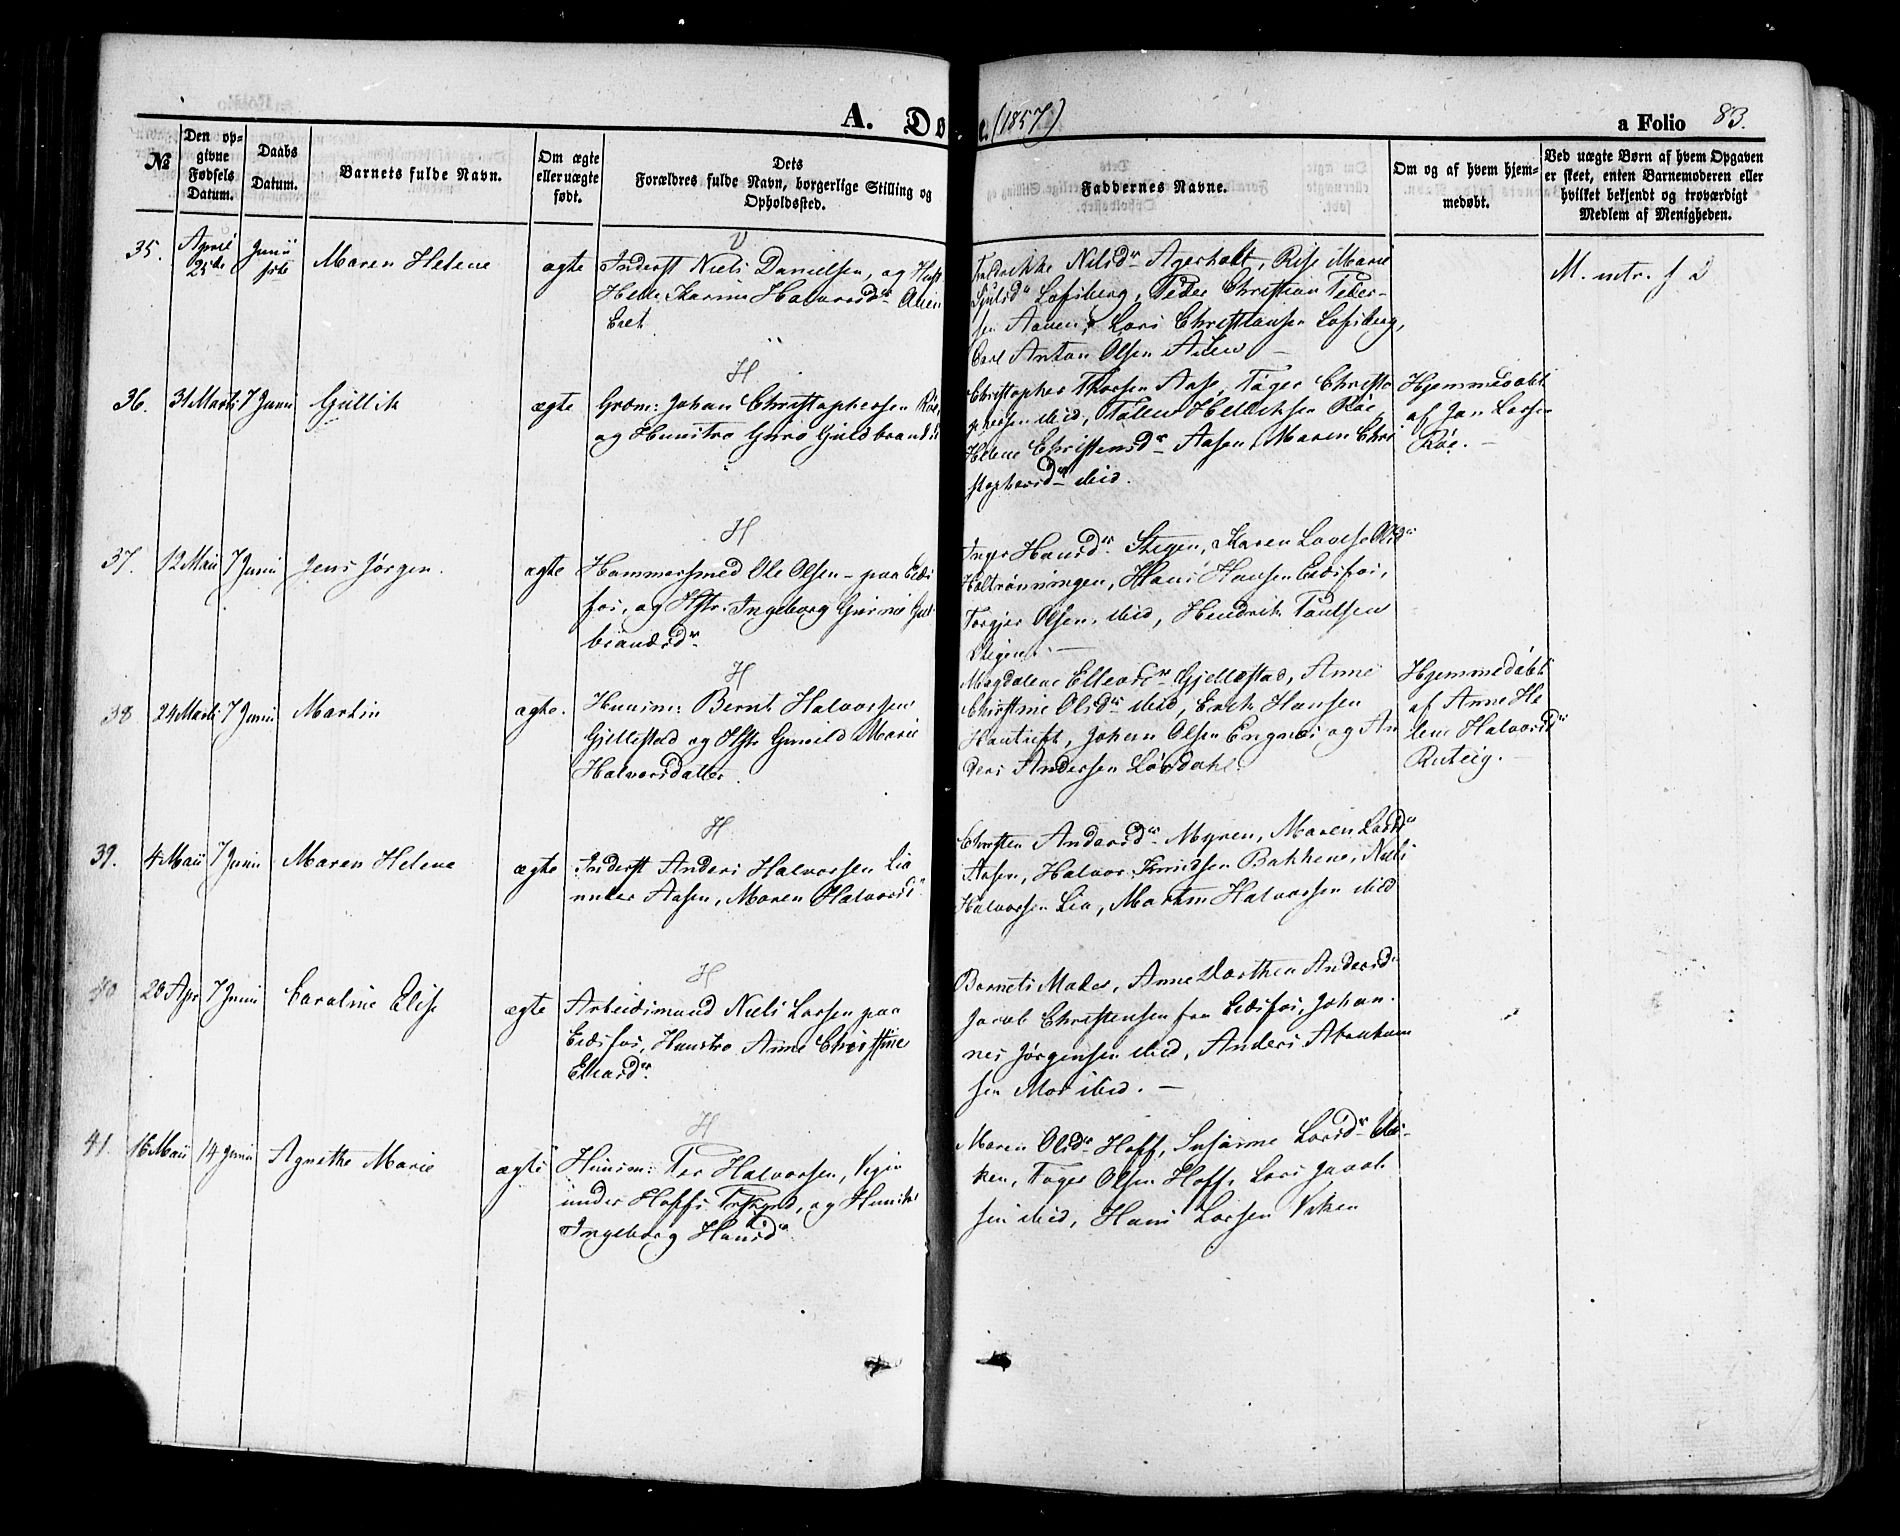 A. Dø
e. (1857)
a Folio 83.
№
Den op-
givne
Fødsels
Datum.
Daabs
Datum.
Barnets fulde Navn.
Om ægte
eller uægte
født.
Dets
Forældres fulde Navn, borgerlige Stilling og
Opholdssted.
Faddernes Navne.
Om og af hvem hjem-
medøbt.
Ved uægte Børn af hvem Opgaven
er skeet, enten Barnemoderen eller
hvilket bekjendt og troværdigt
Medlem af Menigheden.
35.
April
25de
Junii
1ste
Maren Helene
ægte
Inderst Niels Danielsen, og
Helle Karine Halvorsdr
Eiet
Nilsdr Agerholt, Rise Marie
Lofsberg, Peder Christian Peder-
sen Aaven, Lars Christiansen Lofsberg,
Carl Anton Olsen
M. ntr. f 2
H
36.
31 Marti
7 Junii
Gullik
ægte
Grdm: Johan Christophersen Røe,
og Hustro Guro Guldbrandsd
Christopher Thorsen Aase, Tager Christo
phersen ibid, Hendriksen Røe,
Helene Christensdr Aasen, Maren Chri
stophersdr ibid.
Hjemmedøbt
af Jan Larsen
Røe. —
H
37.
12 Maii
7 Junii
Jens Jørgen.
ægte
Hammersmed Ole Olsen – paa Eids
fos, og Hstr: Ingeborg Gurine Gul
brandsdr
Inger Hansdr Stegen, Karen Lovise Olsdr
Holtrønningen, Hans Hansen Eidsfos,
Torgjer Olsen, ibid, Hendrik Paulsen
Stegen. —
H
38
24 Marti
7 Junii
Martin
ægte.
Huusm: Bernt Halvorsen
Gjellestad og Hstr Gunild Marie
Halvorsdatter.
Magdalene Ellevsdr Gjellestad, Anne
Christine Olsdr ibid, Erik Hansen
Johan Olsen Engnæs og An
ders Andersen Lørdahl.
Hjemmedøbt
af Anne He
lene Halvorsdr
Ruteig. —
H
39.
4 Maii
7 Junii
Maren Helene
ægte
Inderst Anders Halvorsen Lia
under Aasen, Maren Halvorsd
Andersdr Myren, Maren Larsdr
Aasen, Halvor Knudsen Bakkene, Niels
Halvorsen Lia, Martin Halvorsen ibid
H
40
20 Apr
7 Junii
Caroline Elise
ægte
Arbeidsmand Niels Larsen paa
Eidsfos, Hustro Anne Christine
Ellevsdr
Barnets Moder, Anne Dorthea Andersdr
Jacob Christensen fra Eidsfos, Johan-
nes Jørgensen ibid, Anders Abraham
sen Moe ibid. —
H
41.
16 Maii
14 Junii
Agnethe Marie
ægte
Huusm: Per Halvorsen,
under Hoffs Præstgrd, og Hustr
Ingeborg Hansdr
Maren Olsdr Hoff, Susanne Larsdr Vi-
ken, Tager Olsen Hoff, Lars Jacob
sen ibid, Hans Larsen Viken